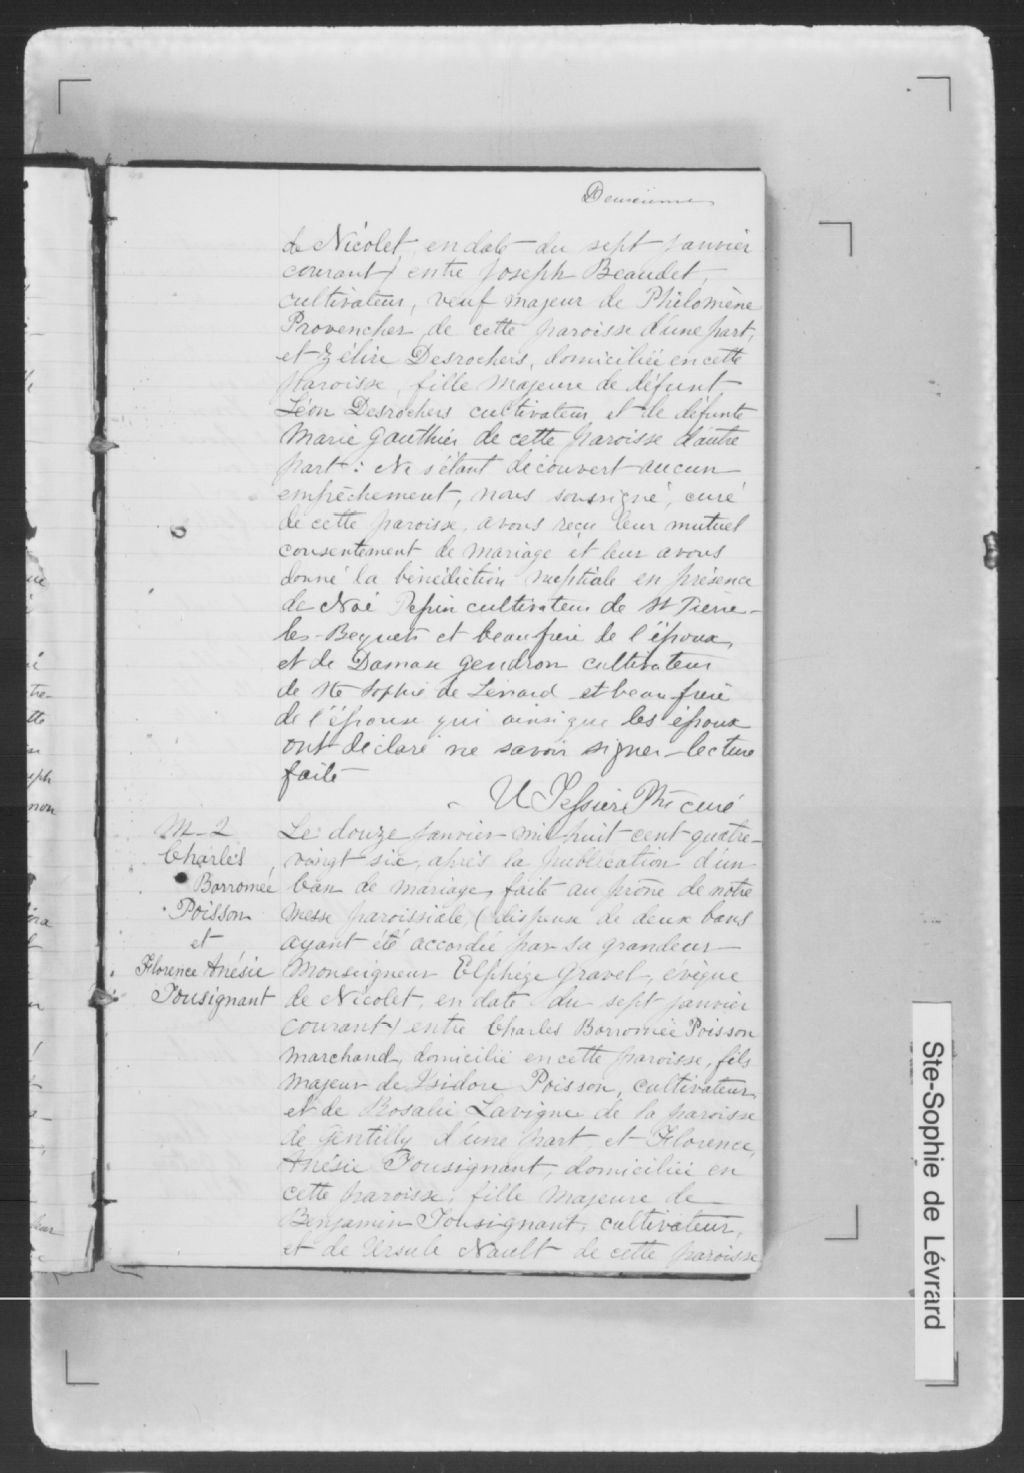 Deuxième
de Nicolet, en date du sept janvier
courant) entre Joseph Beaudet,
cultivateur, veuf majeur de Philomène
Provencher de cette paroisse d'une part,
et Zélire Desrochers, domiciliée en cette
paroisse, fille majeure de défunt
Léon Desrochers cultivateur et de défunte
Marie Gauthier de cette paroisse d'autre
part: Ne s'étant découvert aucun
empêchement, nous soussigné, curé
de cette paroisse, avons reçu leur mutuel
consentement de mariage et leur avons
donné la bénédiction nuptiale en présence
de Noé Pepin cultivateur de St Pierre-
les-Becquets et beaufrère de l'époux,
et de Damase Gendron cultivateur
de Ste Sophie de Lévrard et beaufrère
de l'épouse qui ainsi que les époux
ont déclaré ne savoir signer lecture
faite
U Tessier Ptre curé
M-2
Charles
Borromée
Poisson
et
Florence Anésie
Tousignant
Le douze janvier mil huit cent quatre-
vingt six, après la publication d'un
ban de mariage, faite au prône de notre
messe paroissiale, (dispense de deux bans
ayant été accordée par sa grandeur
Monseigneur Elphége Gravel, évêque
de Nicolet, en date du sept janvier
courant) entre Charles Borromée Poisson
marchand, domicilié en cette paroisse, fils
majeur de Isidore Poisson, cultivateur,
et de Rosalie Lavigne de la paroisse
de Gentilly d'une part et Florence
Anésie Tousignant, domiciliée en
cette paroisse, fille majeure de
Benjamin Tousignant, cultivateur,
et de Ursule Nault de cette paroisse
Ste-Sophie de Lévrard